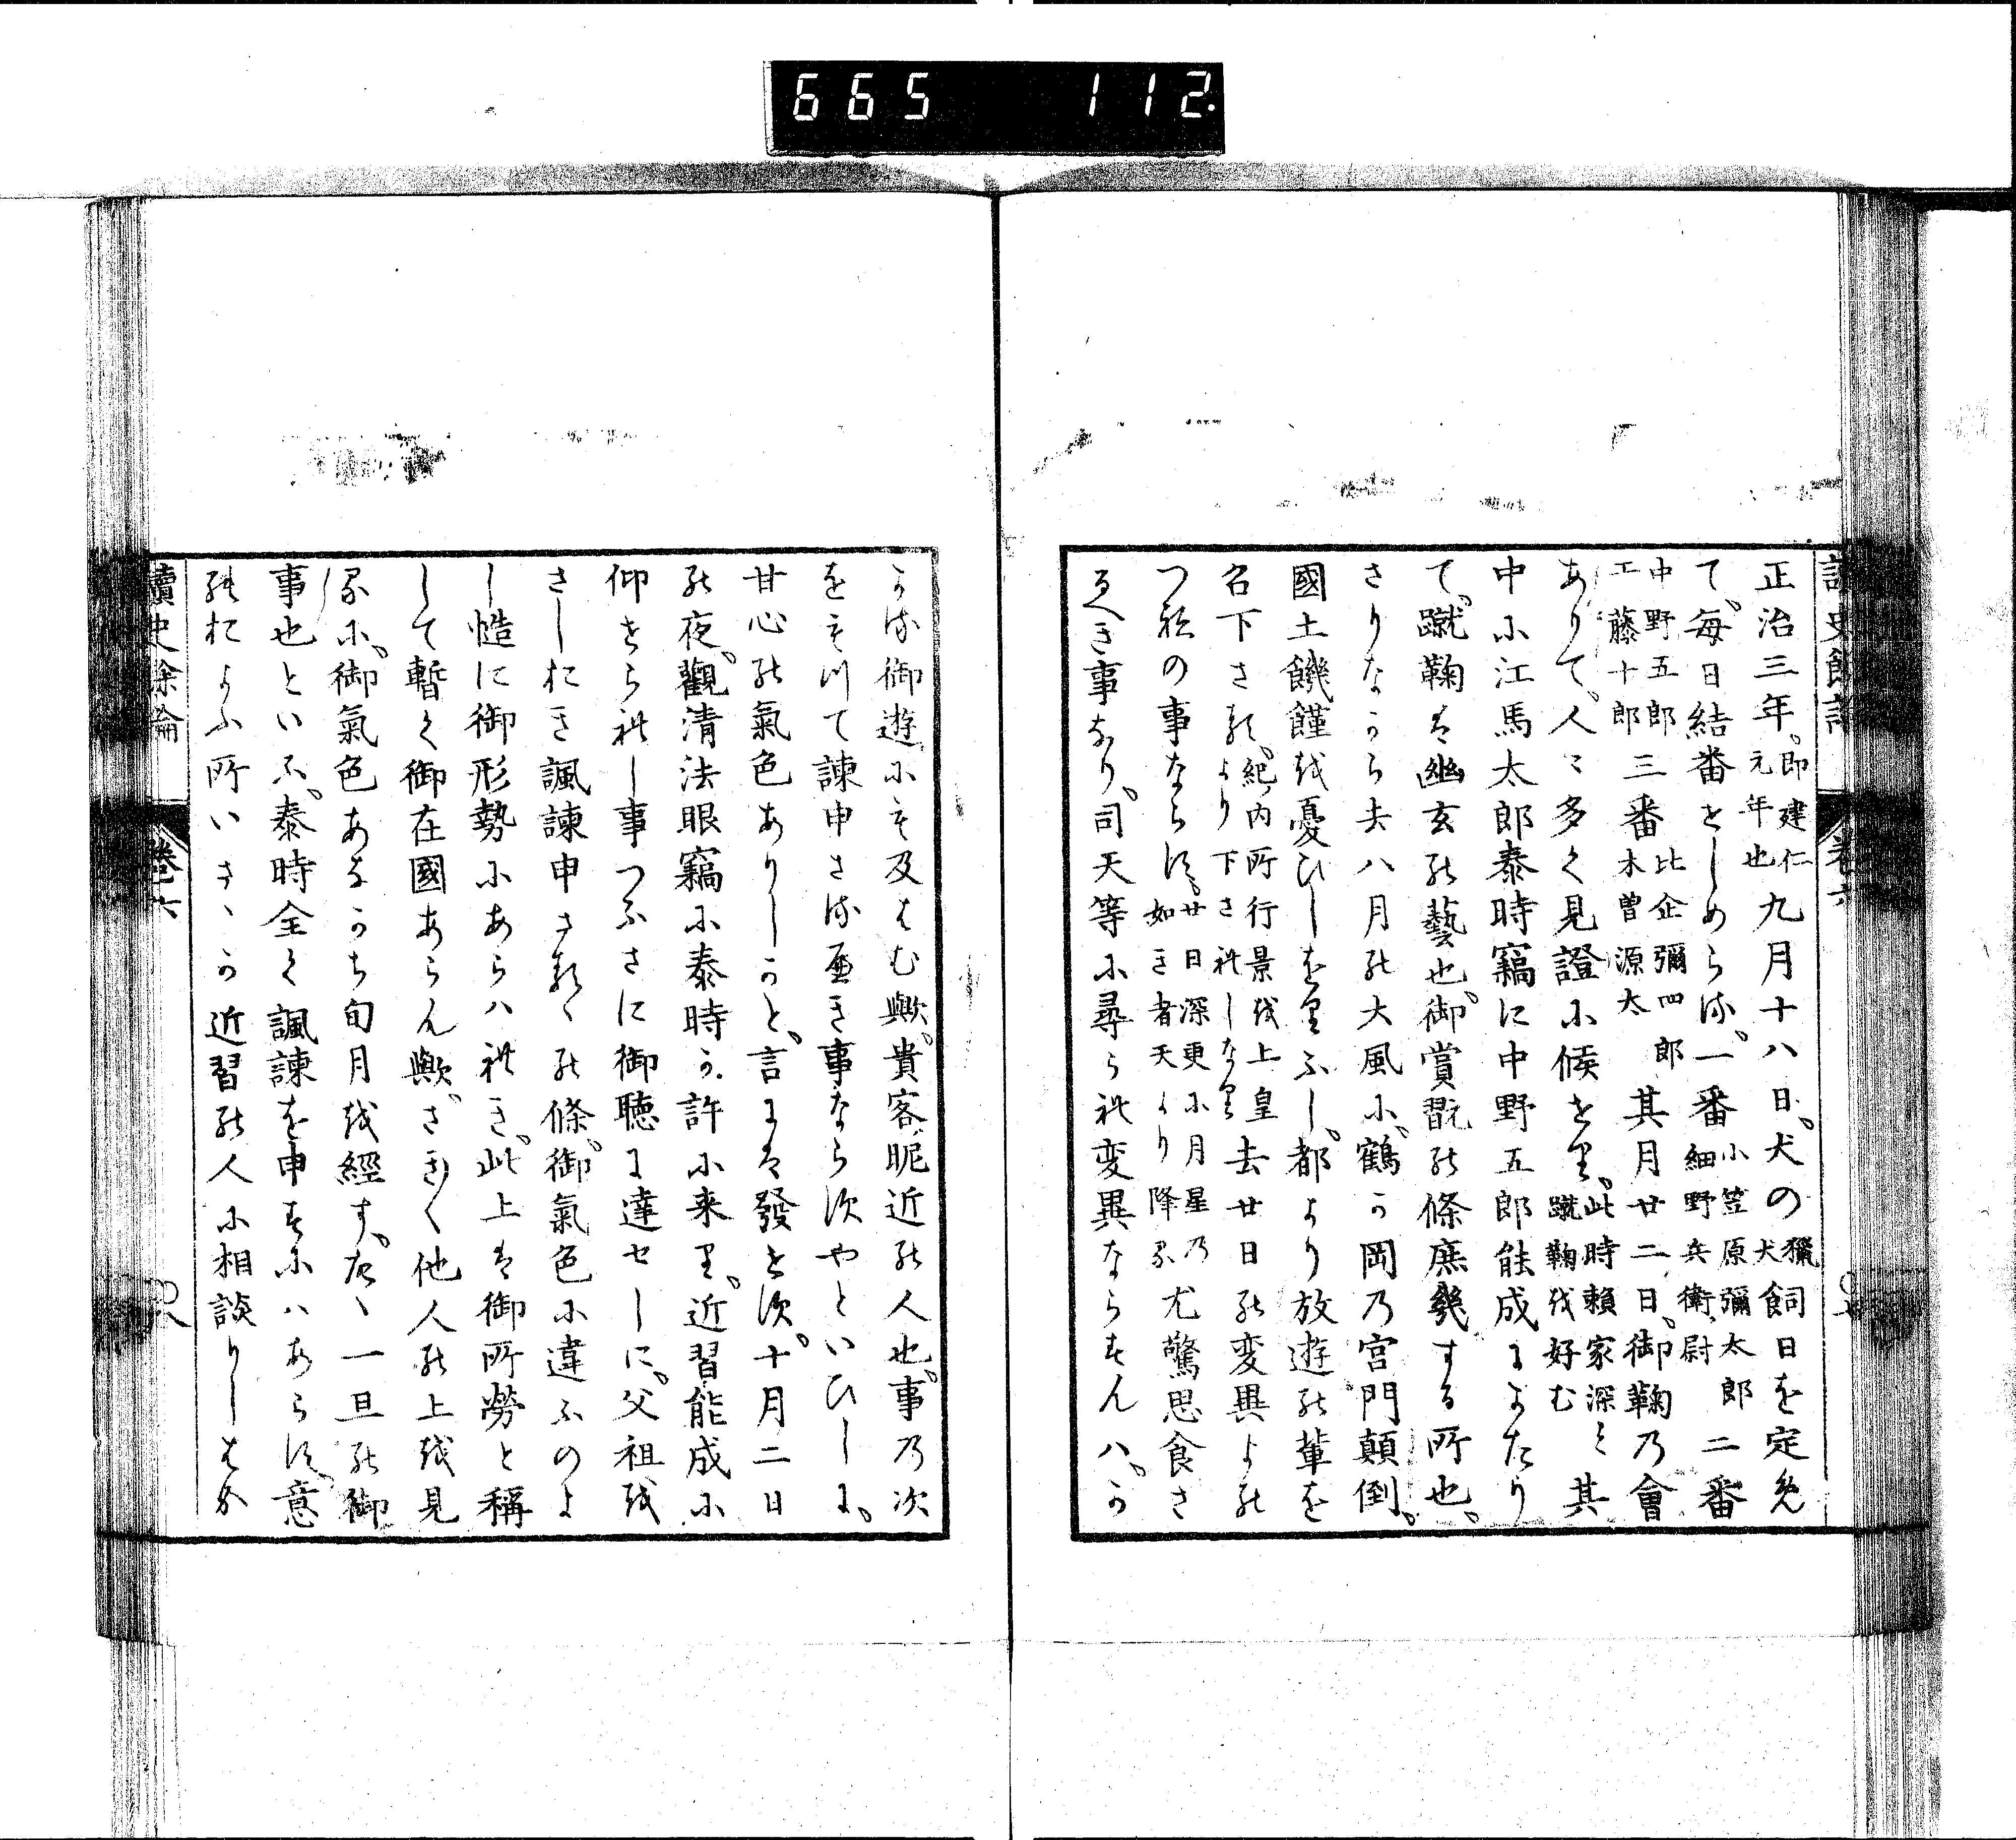 665 112
正治三年。即建仁元年也九月十八日。犬の獵犬飼日を定め
て。毎日結番せしめらる。一番小笠原彌太郎細野兵衛尉二番
中野五郎工藤十郎三番比企彌四郎木曽源太其月廿二日。御鞠乃會
ありて。人々多く見證に候せり。此時頼家深く蹴鞠を好む其
中に江馬太郎泰時竊に中野五郎能成にかたり
て。蹴鞠は幽玄の藝也。御賞翫の條庶幾する所也。
さりながら去八月の大風に。鶴か岡乃宮門顛倒。
國土饑饉を憂ひしをりふし。都より放遊の輩を
召下さる。紀内所行景を上皇より下されしなり去廿日の変異よの
つねの事ならす。廿日深更に月星乃如き者天より降る尤驚思食さ
るへき事なり。司天等に尋られ変異ならすんハ。か
かる御遊にも及はむ歟。貴客昵近の人也。事乃次
をもつて諫申さるへき事ならすやといひしに。
甘心の氣色ありしかと。言には發せす。十月二日
の夜。觀清法眼竊に泰時か許に来り。近習能成に
仰せられし事つふさに御聴に達セしに。父祖を
さしおき諷諫申さるゝの條。御氣色に違ふのよ
し慥に御形勢にあらハれき。此上は御所勞と稱
して暫く御在國あらん歟。さきく他人の上を見
るに。御氣色あるかち旬月を經す。左ゝ一旦の御
事也といふ。泰時全く諷諫を申すにハあらす。意
のおよふ所いさゝか近習の人に相談りしはか
讀史餘論 卷六